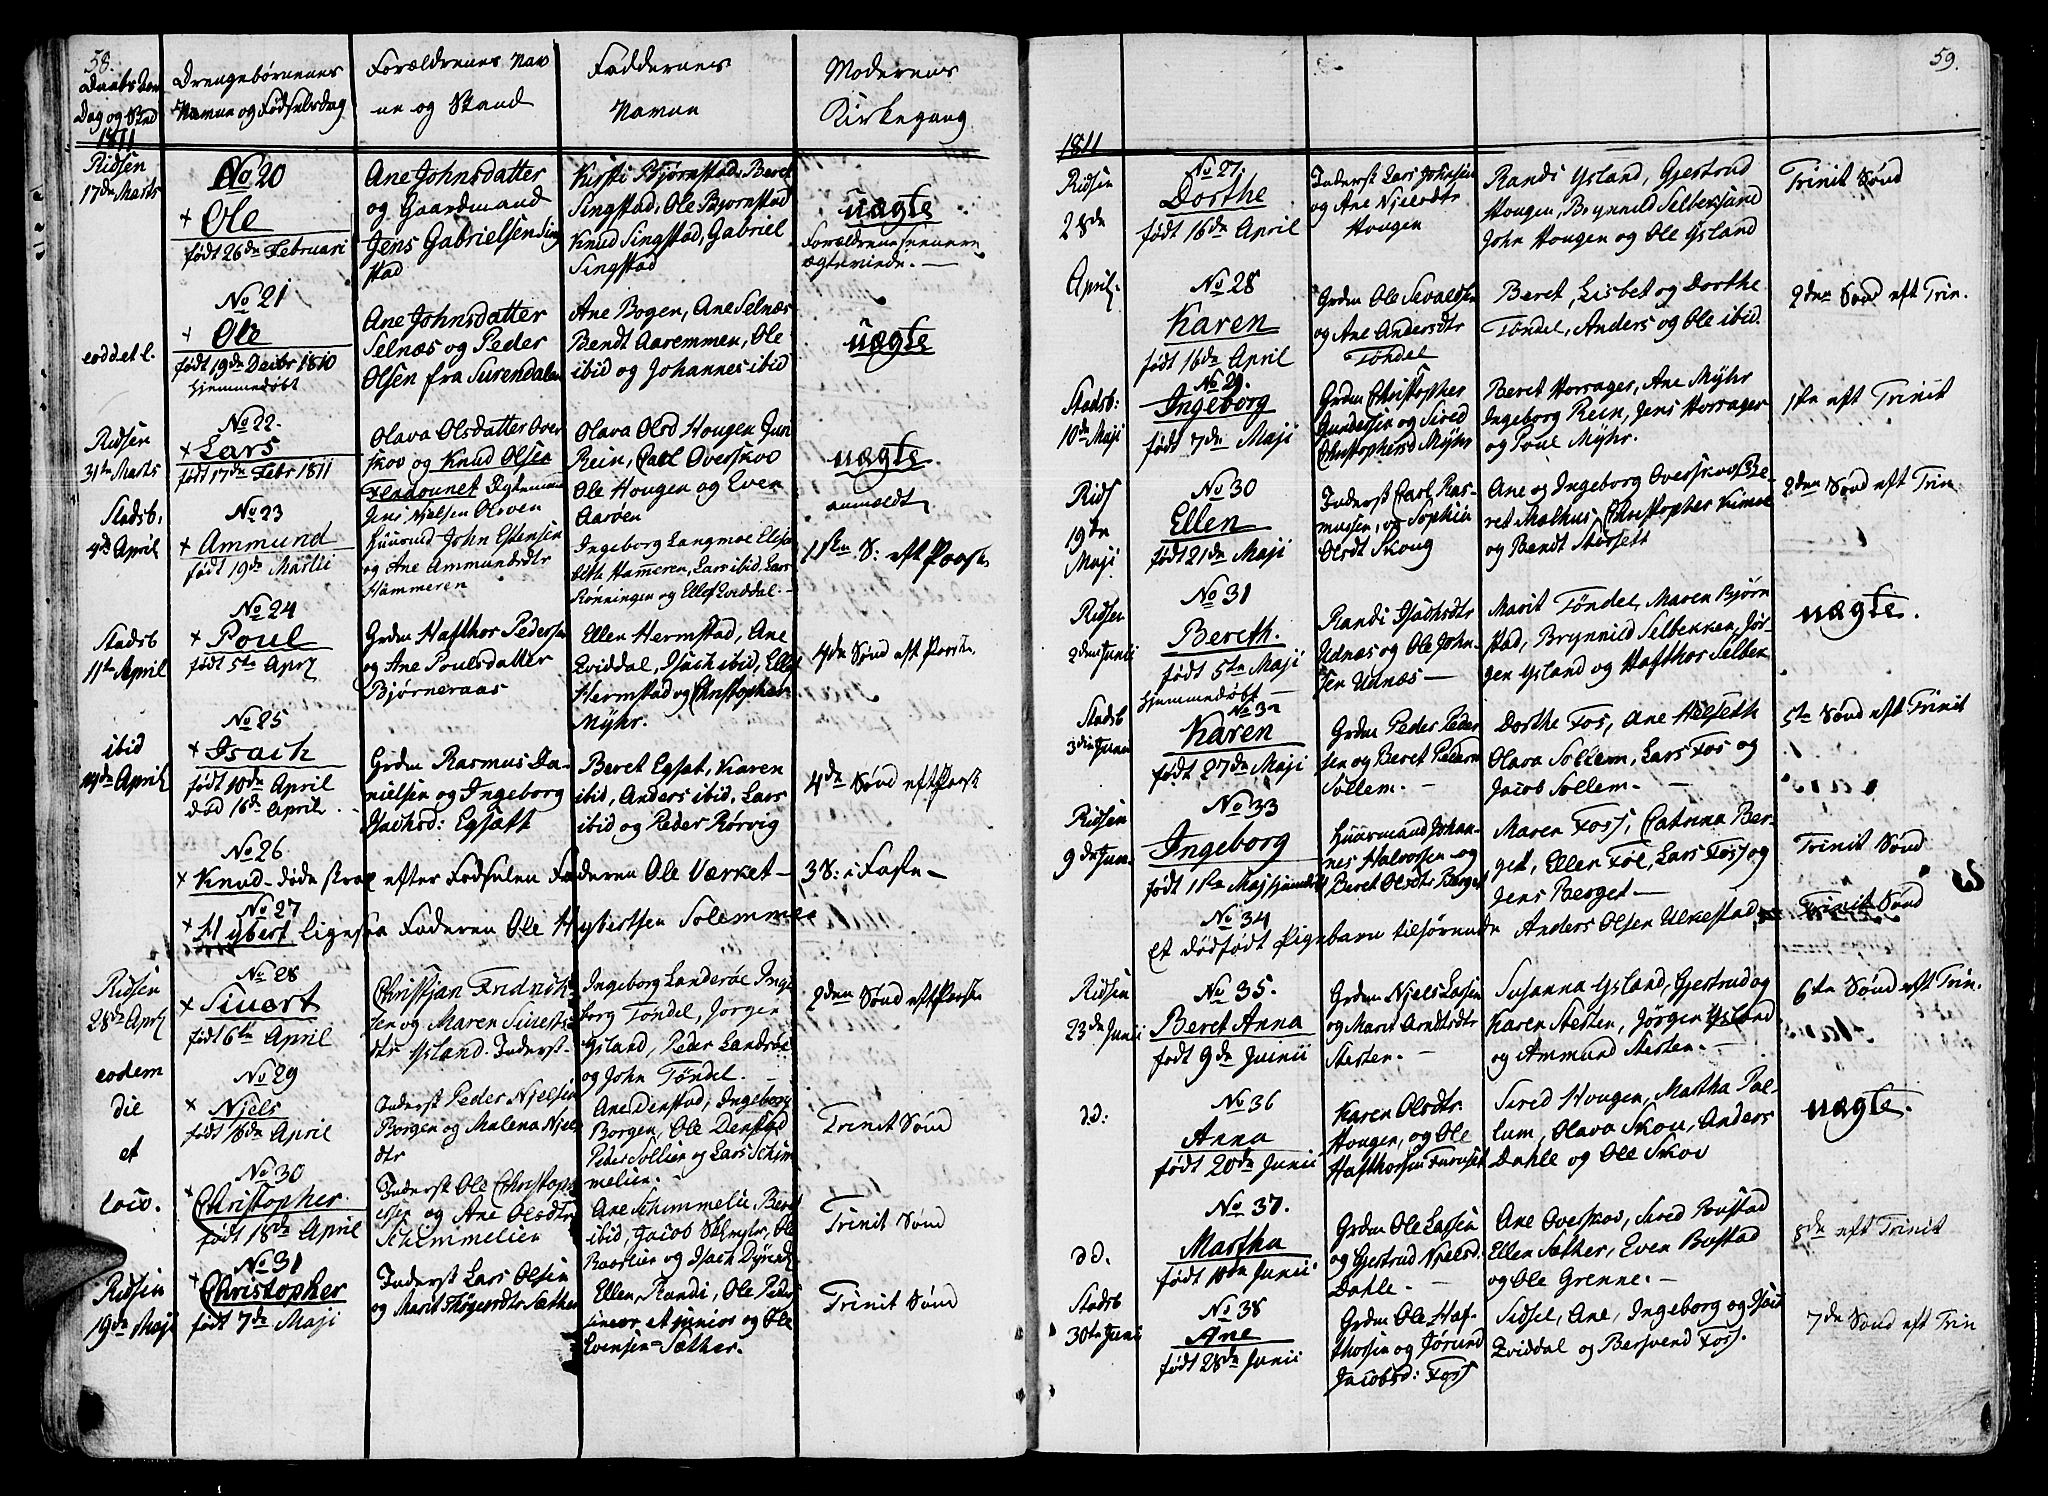 58.
Daabs
Dag og Sted
Drengebørnenes
Navne og Fødselsdag
Forældrenes Nav
ne og Stand
Faddernes
Navne
Moderens
Kirkegang
1811
Ridsen
17de Marts
No 20
+ Ole
født 26de Februari
Ane Johnsdatter
og Gaardmand
Jens Gabrielsen Sing
stad
Kirsti Bjørnstad, Beret
Singstad, Ole Bjørnstad
Knud Singstad, Gabriel
Singstad
uægte
Forældrene
ægteviede.
eod det l.
No 21
+ Ole
født 19de Decbr 1810
hjemmedøbt
Ane Johnsdatter
Selnæs og Peder
Olsen fra Surendalen
Ane Bogen, Ane Selnæs
Bendt Aaremmen, Ole
ibid og Johannes ibid
uægte
Ridsen
31te Marts
No 22.
+ Lars
født 17de Febr 1811
Olava Olsdatter Over
skov og Knud Olsen
Jens Njelsen Olsven
Olava Olsd Hougen
Rein, Carl Overskov
Ole Hougen og Even
Aarøen
uægte
anmeldt
Stadsb.
4de April
No 23
+ Ammund
født 19de Martii
Huusmd John Estensen
og Ane Ammundsdtr
Hammeren
Ingeborg Langmoe Elisa
beth Hammeren, Lars ibid, Lars
Rønningen og Ellef Eviddal.
1ste S: eft Paaske
Stadsb
11te April
No 24
+ Poul
født 5te April
Grdm Hafthor Pedersen
og Ane Poulsdatter
Bjørneraas
Ellen Hermstad, Ane
Eviddal, Isach ibid, Ellef
Hermstad og Christopher
Myhr.
4de Sønd eft Paaske
ibid
14de April
No 25
+ Isach
født 10de April
død 16de April
Grdm Rasmus Da-
nielsen og Ingeborg
Isachsd: Egsætt
Beret Egsæt, Karen
ibid, Anders ibid, Lars
ibid og Peder Rørvig
4de Sønd eft Paaske
No 26
+ Knud døde strax efter Fødselen Faderen Ole Værket
3 S: i Faste
No 27
+ Aybert ligesaa Faderen Ole Aybertsen Solemme
Ridsen
28de April
No 28
+ Sivert
født 6te April
Christjan Fredrich-
sen og Maren Siverts-
dtr Ysland. Inderst
Ingeborg Landerøe Inge
borg Tøndel, Jørgen
Ysland, Peder Landrøe
og John Tøndel.
2den Sønd eft Paaske
eodem
die
et
loco.
No 29
+ Njels
født 16de April
Inderst Peder Njelsen
Borgen og Malena Njels
dtr
Ane Denstad, Ingeborg
Borgen, Ole Denstad
Peder Sollien og Lars Schim
melien.
Trinit Sønd
No 30
+ Christopher
født 18de April
Inderst Ole Christoph
sen og Ane Olsdtr
Schimmelien
Ane Schimmelien, Beret
ibid, Jacob
Baarlien og Isach
Trinit Sønd
Ridsen
19de Maji
No 31
+ Christopher
født 7de Maji
Inderst Lars Olsen
og Marit Thøgersdtr Sæther
Ellen, Randi, Ole Peder
senior et junior og Ole
Evensen Sæther.
Trinit Sønd
59.
1811
Ridsen
28de
April.
No 27
Dorthe
født 16de April
Inderst Lars Johnsen
og Ane Njelsdtr
Hougen
Randi Ysland, Gjertrud
Hougen, Brynnild Selbeksand
John Hougen og Ole Ysland
Trinit Sønd
No 28
Karen
født 16de April
Grdm Ole Sivaldsen
og Ane Andersdtr
Tøndel
Beret, Lisbet og Dorthe
Tøndel, Anders og Ole ibid
2den Sønd eft Trin.
Stadsb:
10de Maji
No 29.
Ingeborg
født 7de Maji
Grdm Christopher
Gundersen og Sired
Christophersd Myhr
Beret Horrager, Ane Myhr
Ingeborg Rein, Jens Horrager
og Poul Myhr.
1ste eft Trinit
Rids
19de
Maji
No 30
Ellen
født 21de Maji
Inderst Carl Ras-
mussen, og Sophia
Olsdt Skoug
Ane og Ingeborg Overskov Be
ret Mælhus, Christopher Kimoe
og Bendt Størsett
2den Sønd eft Trin
Ridsen
2den Junii
No 31
Bereth.
født 5te Maji
hjemmedøbt
Randi Isachsdtr
Udnæs og Ole John-
sen Udnæs
Marit Tøndel, Maren Bjørn
stad, Brynnild Selbekken, Jør
gen Ysland og Hafthor Selbek
uægte.
Stadsb
3die Juni
No 32
Karen
født 27de Maji
Grdm Peder Peder
sen og Beret Pedersd
Sollem.
Dorthe Fos, Ane Helseth
Olava Sollem, Lars Fos og
Jacob Sollem.
5te Sønd eft Trinit
Ridsen
9de Juni
No 33
Ingeborg
født 1ste Maj hjemdøbt
Huusmand Johan-
nes Halvorsen og
Beret Olsdtr Berget
Maren Foss, Catrina Ber-
get, Ellen Føl, Lars Foss og
Jens Berget
Trinit Sønd
No 34
Et dødfødt Pigebarn tilhørende Anders Olsen Ulvestad
Trinit Sønd
Ridsen
23de Junii
No 35.
Beret Anna
født 9de Junii
Grdm Njels Larsen
og Marit Arntsdtr
Stesten.
Susanna Ysland, Gjertrud og
Karen Stesten, Jørgen Ysland
og Ammund Stesten.
6te Sønd eft Trin.
dd:
No 36
Anna
født 20de Junii
Karen Olsdtr.
Hougen, og Ole
Hafthorsen Furuset
Sired Hougen, Martha Pal
lum, Olava Skou, Anders
Dahle og Ole Skov
uægte.
dd.
No 37.
Martha
født 18de Junii
Grdm Ole Larsen
og Gjertrud Njelsd.
Dahle.
Ane Overskov, Sired Bustad
Ellen Sæther, Even Bustad
og Ole Grenne.
8de eft Trinit
Stadsb
30te Junii
No 38
Ane
født 28de Junii
Grdm Ole Haf-
thorsen og Jørund
Jacobsd: Foss
Sidsel, Ane, Ingeborg og Isach
Eviddal og Bersvend Foss.
7de Sønd eft Trin